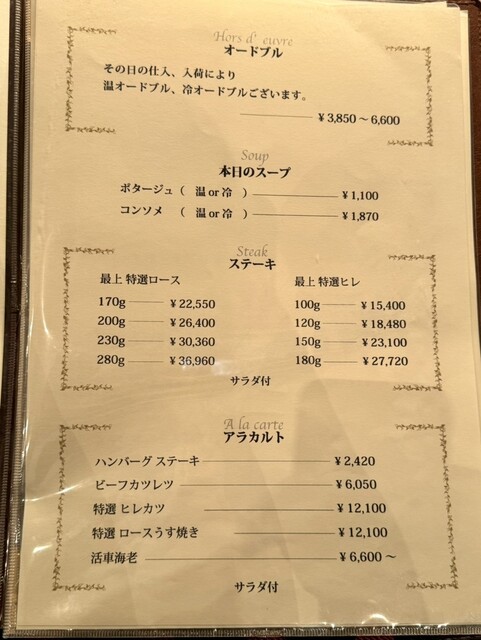 Hors d' euvre
オードブル
その日の仕入、入荷により
温オードブル、冷オードブルございます。
¥3,850〜6,600
Soup
本日のスープ
ポタージュ（ 温 or 冷 ） ¥1,100
コンソメ （ 温 or 冷 ） ¥1,870
Steak
ステーキ
最上 特選ロース 最上 特選ヒレ
170g ¥22,550 100g ¥15,400
200g ¥26,400 120g ¥18,480
230g ¥30,360 150g ¥23,100
280g ¥36,960 180g ¥27,720
サラダ付
A la carte
アラカルト
ハンバーグ ステーキ ¥2,420
ビーフカツレツ ¥6,050
特選 ヒレカツ ¥12,100
特選 ロースうす焼き ¥12,100
活車海老 ¥6,600〜
サラダ付